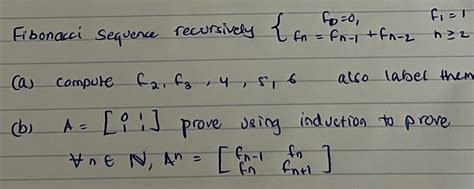 Fibonacci Sequence recursively { f₀=0, f₁=1
fₙ = fₙ₋₁ + fₙ₋₂ n≥2
(a) compute f₂, f₃, 4, 5, 6 also label them
(b) A = [0 1 1 1] prove using induction to prove
∀n∈ ℕ, Aⁿ = [fₙ₋₁ fₙ
fₙ fₙ₊₁]